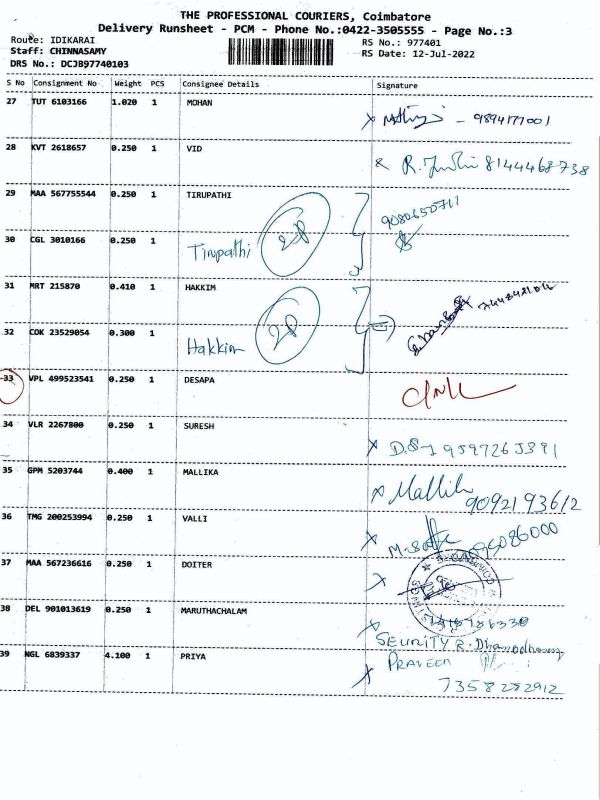 THE PROFESSIONAL COURIERS, Coimbatore
Delivery Runsheet - PCM - Phone No.:0422-3505555 - Page No.:3
Route: IDIKARAI
RS No.: 977401
Staff: CHINNASAMY
RS Date: 12-Jul-2022
DRS No.: DCJB97740103
S No Consignment No Weight PCS Consignee Details Signature
27 TUT 6103166 1.020 1 MOHAN
9894177001
28 KVT 2618657 0.250 1 VID
8144468738
29 MAA 567755544 0.250 1 TIRUPATHI
9080650711
30 CGL 3010166 0.250 1
Tirupathi
31 MRT 215870 0.410 1 HAKKIM
32 COK 23529054 0.300 1
Hakkim
33 VPL 499523541 0.250 1 DESAPA
34 VLR 2267800 0.250 1 SURESH
35 GPM 5203744 0.400 1 MALLIKA
9092193612
36 TMG 200253994 0.250 1 VALLI
37 MAA 567236616 0.250 1 DOITER
38 DEL 901013619 0.250 1 MARUTHACHALAM
SEURITY R.
39 NGL 6839337 4.100 1 PRIYA
PRAVEEN
7358282912